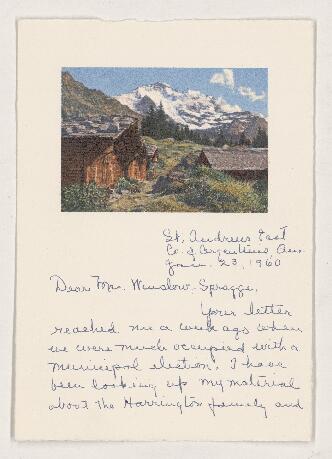 St. Andrews East
Co. of Argenteuil, Que.
Jan. 23, 1960
Dear Mr. Winslow-Spragge,
Your letter
reached me a week ago when
we were much occupied with a
municipal election. I have
been looking up my material
about the Harrington family and